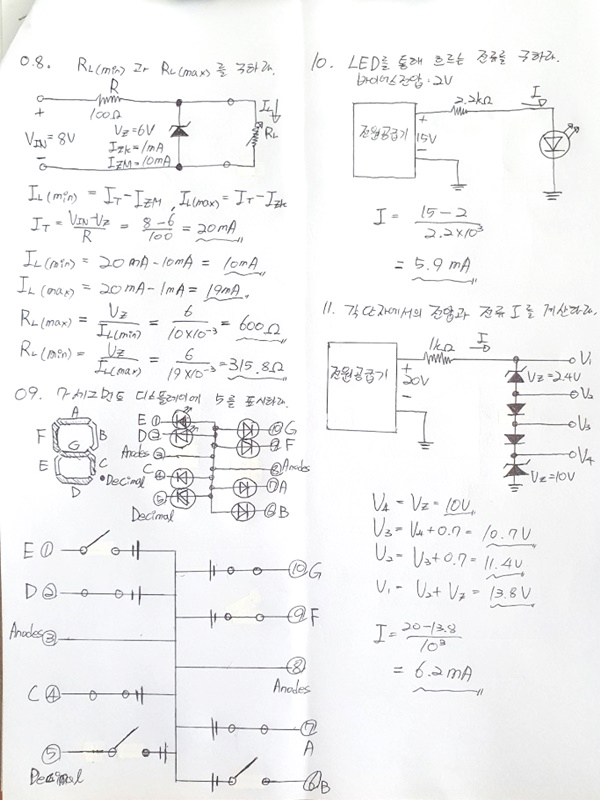 08. RL(min) 과 RL(max)를 구하라.
R
100Ω
+
VIN=8V
-
VZ=6V
IZK=1mA
IZM=10mA
IL
RL
IL(min) = IT-IZM, IL(max)=IT-IZK
IT = VIN-VZ / R = 8-6 / 100 = 20mA
IL(min) = 20mA-10mA = 10mA
IL(max) = 20mA-1mA = 19mA
RL(max) = VZ / IL(min) = 6 / 10×10⁻³ = 600Ω
RL(min) = VZ / IL(max) = 6 / 19×10⁻³ = 315.8Ω
09. 7세그먼트 디스플레이에 5를 표시하라.
A
F B
G
E C
Decimal
D
E ①
D ②
Anodes ③
C ④
⑤
Decimal
⑩ G
⑨ F
⑧ Anodes
⑦ A
⑥ B
E ①
D ②
Anodes ③
C ④
⑤
Decimal
⑩ G
⑨ F
⑧
Anodes
⑦
A
⑥ B
10. LED를 통해 흐르는 전류를 구하라.
바이어스전압: 2V
2.2kΩ
I
전원공급기
+
15V
-
I = 15-2 / 2.2×10³
= 5.9mA
11. 각 단자에서의 전압과 전류 I를 계산하라.
1kΩ
I
전원공급기
+
20V
-
V₁
VZ=2.4V
V₂
V₃
V₄
VZ=10V
V₄ = VZ = 10V
V₃ = V₄+0.7 = 10.7V
V₂ = V₃+0.7 = 11.4V
V₁ = V₂+VZ = 13.8V
I = 20-13.8 / 10³
= 6.2mA